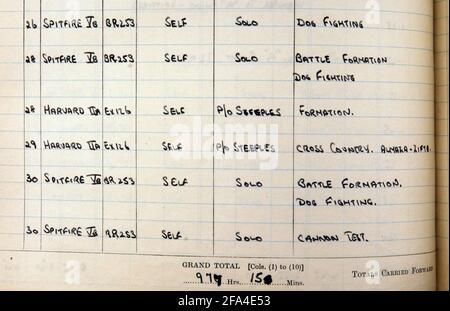 26 SPITFIRE VB BR253 SELF SOLO DOG FIGHTING
28 SPITFIRE VB BR253 SELF SOLO BATTLE FORMATION
DOG FIGHTING
28 HARVARD IIA EX126 SELF P/O STEEPLES FORMATION.
29 HARVARD IIA EX126 SELF P/O STEEPLES CROSS COUNTRY. ALMAZA-
30 SPITFIRE VB BR253 SELF SOLO BATTLE FORMATION.
DOG FIGHTING.
30 SPITFIRE VB BR253 SELF SOLO CANNON TEST.
GRAND TOTAL [Cols. (1) to (10)]
977 Hrs. 15 Mins.
TOTALS CARRIED FORWARD
alamy
alamy
Image ID: 2FA4E53
www.alamy.com